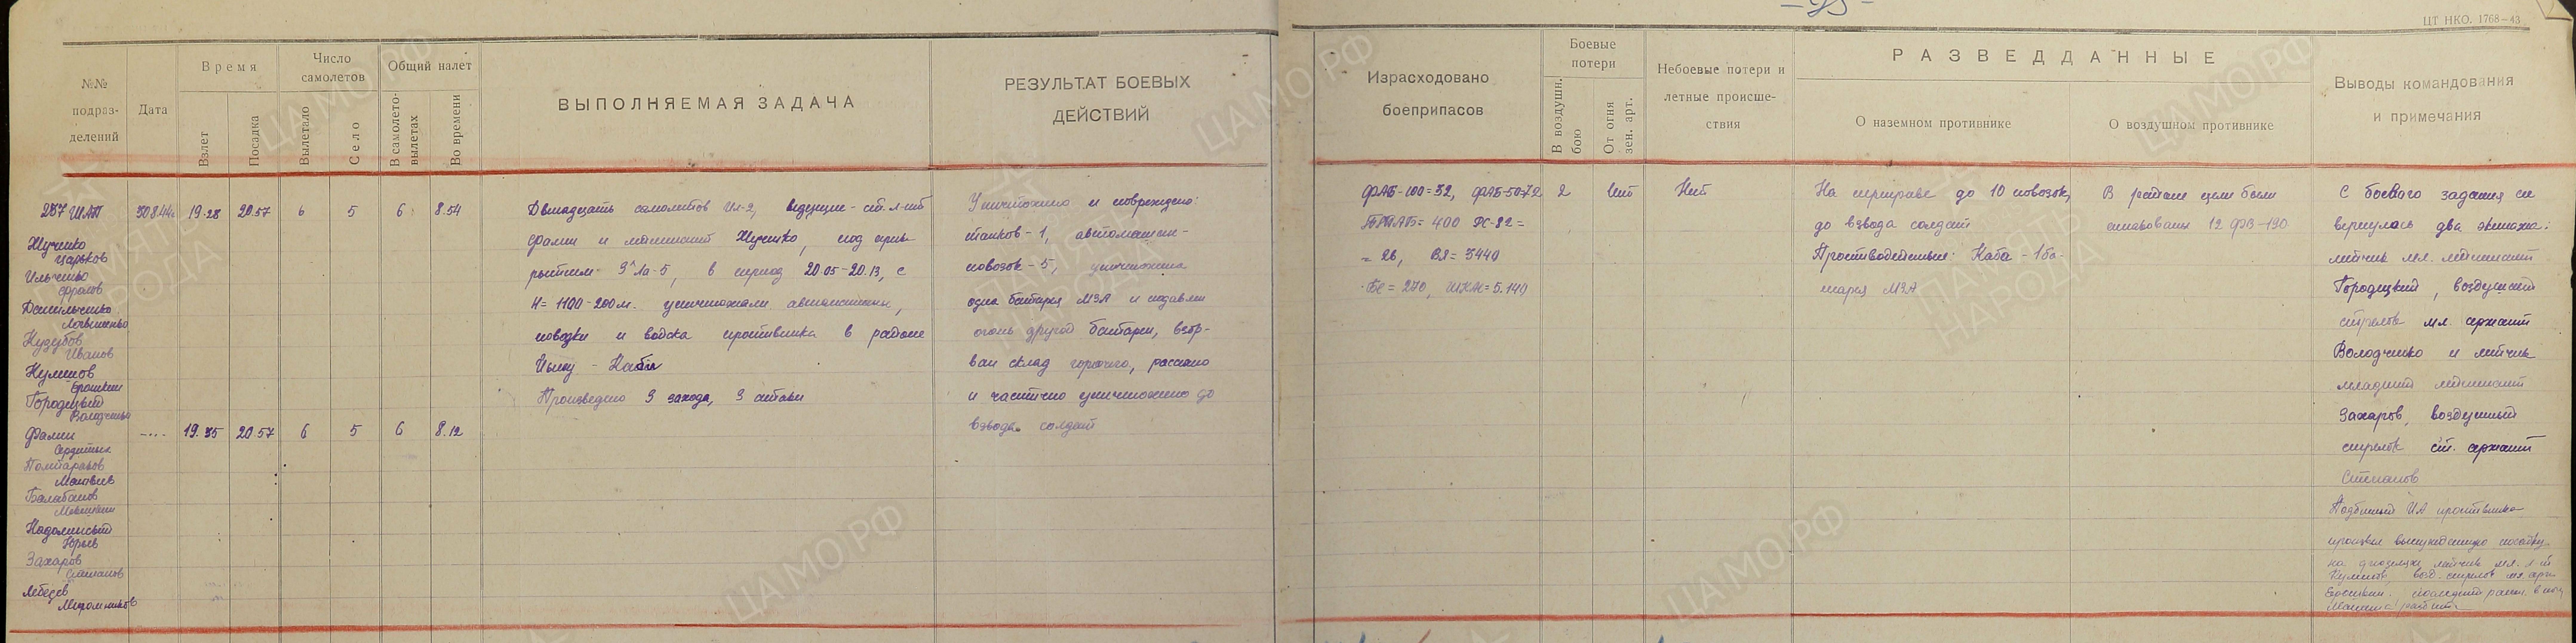 - 95 -
ЦТ НКО. 1768—43
№№ подраз-делений
Дата
Время
Взлет
Посадка
Число самолетов
Вылетало
Село
Общий налет
В самолето-вылетах
Во времени
ВЫПОЛНЯЕМАЯ ЗАДАЧА
РЕЗУЛЬТАТ БОЕВЫХ ДЕЙСТВИЙ
Израсходовано боеприпасов
Боевые потери
В воздушн. бою
От огня зен. арт.
Небоевые потери и летные происше-ствия
РАЗВЕДДАННЫЕ
О наземном противнике
О воздушном противнике
Выводы командования и примечания
ШАП 30.8.44г. 19-28 20.57 6 5 6 8.54
Жученко
Царьков
Ильченко
Фролов
Данильченко
Логвиненко
Кудубов
Иванов
Куликов
Ерошкин
Городецкий
Володченко
Фалин -"- 19.35 20.57 6 5 6 8.12
Матвеев
Балабанов
Надолинский
Юрьев
Захаров
Степанов
Лебедев
Мирошников
Двенадцать самолетов Ил-2, ведущие - ст. л-нт
Фалин и лейтенант Жученко, под прик-
рытием 9 Ла-5, в период 20.05-20.13, с
Н= 1100-200м. уничтожали автомашины,
повозки и войска противника в районе
- Каби
Произведено 3 захода, 3 атаки
Уничтожено и повреждено:
танков - 1, автомашин-
повозок - 5, уничтожена
одна батарея МЗА и подавлен
огонь другой батареи, взор-
ван склад горючего, рассеяно
и частично уничтожено до
взвода солдат
ФАБ-100=32, ФАБ-50=72
ПТАБ= 400 РС-82 =
= 26, ВЯ= 3440
БС = 270, ШКАС= 5.140
2
Нет
Нет
На переправе до 10 повозок,
до взвода солдат
Противодействие: Каба - 1 ба-
тарея МЗА
В районе цели были
атакованы 12 ФВ-190
С боевого задания не
вернулось два экипажа:
летчик мл. лейтенант
Городецкий, воздушный
стрелок мл. сержант
Володченко и летчик
младший лейтенант
Захаров, воздушный
стрелок ст. сержант
Степанов
Подбитый ИА противника
произвел вынужденную посадку
на фюзеляж летчик мл. л-нт
Куликов, возд. стрелок мл. серж.
Ерошкин.
Машина разбита
ЦАМО.РФ
ПАМЯТЬ НАРОДА
ЦАМО.РФ
ПАМЯТЬ НАРОДА
ЦАМО.РФ
ЦАМО.РФ
ПАМЯТЬ НАРОДА
ЦАМО.РФ